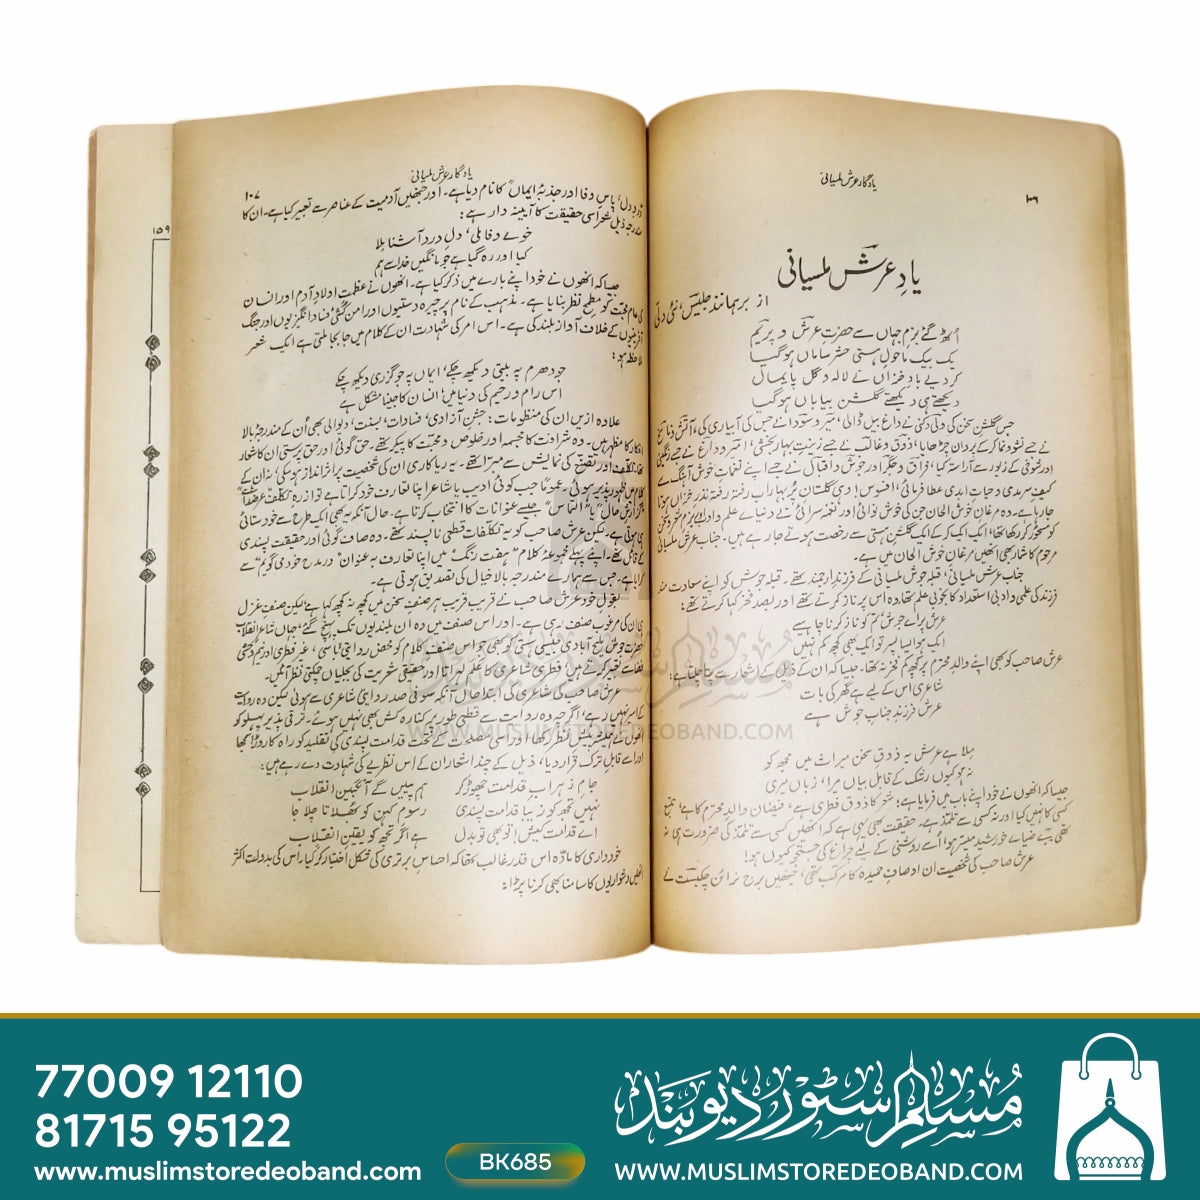 یادگار عرش ملسیانی
۱۰۶
یادِ عرش ملسیانی
از برہمانند جلیس، نئی دلی
اُٹھ گئے بزمِ جہاں سے حضرتِ عرش و پریم
یک بیک ماحولِ ہستی حشر ساماں ہوگیا
کر دیے بادِ خزاں نے لالہ و گل پایمال
دیکھتے ہی دیکھتے گلشن بیاباں ہوگیا
جس گلشنِ سخن کی ولی دکنی نے داغ بیل ڈالی، میر و سودا نے جس کی آبیاری کی، آتش و ناسخ
نے جسے نشوونما کرکے پروان چڑھایا، ذوق و غالب نے جسے زینتِ بہار بخشی، امیر و داغ نے جسے رنگینی
اور شوخی کے زیور سے آراستہ کیا، فراق و جگر اور جوش و اقبال نے جسے اپنے نغماتِ خوش آہنگ سے
کیفِ سرمدی و حیاتِ ابدی عطا فرمائی، افسوس! وہی گلستانِ پُربہار اب رفتہ رفتہ نذرِ خزاں ہوتا
جارہا ہے۔ وہ مرغانِ خوش الحان جن کی خوش نوائی اور نغمہ سرائی نے دنیائے علم و ادب
کو مسحور کر رکھا تھا، ایک ایک کرکے گلشنِ ہستی سے رخصت ہوتے جارہے ہیں۔ جناب عرش ملسیانی
مرحوم کا شمار بھی انھیں مرغانِ خوش الحان میں ہے۔
جناب عرش ملسیانی، قبلہ جوش ملسیانی کے فرزندِ ارجمند تھے۔ قبلہ جوش کو اپنے سعادت مند
فرزند کی علمی و ادبی استعداد کا بخوبی علم تھا وہ اس پر ناز کرتے تھے اور بصد فخر کہا کرتے تھے:
عرش پر اے جوش تم کو ناز کرنا چاہیے
ایک ہو ایسا پسر تو ایک بھی کچھ کم نہیں
عرش صاحب کو بھی اپنے والدِ محترم پر کچھ کم فخر نہ تھا۔ جیسا کہ ان کے ذیل کے اشعار سے پتا چلتا ہے:
شاعری اس کے لیے ہے گھر کی بات
عرش فرزندِ جنابِ جوش ہے
ملا ہے عرش یہ ذوقِ سخن میراث میں مجھ کو
نہ ہو کیوں رشک کے قابل بیاں میرا، زباں میری
جیسا کہ انھوں نے خود اپنے باب میں فرمایا ہے، شعر کا ذوق فطری ہے، فیضان والدِ محترم کا ہے، تتبع
کسی کا نہیں کیا اور نہ کسی سے تلمذ ہے۔ حقیقت بھی یہی ہے کہ انھیں کسی سے تلمذ کی ضرورت ہی نہ
تھی۔ جسے ضیائے خورشید میسر ہو، اُسے روشنی کے لیے چراغ کی جستجو کیوں ہو!
عرش صاحب کی شخصیت ان اوصافِ حمیدہ کا مرکب تھی، جنھیں برج نرائن چکبست نے
یادگار عرش ملسیانی
۱۰۷
دردِ دل، پاسِ وفا اور جذبۂ ایماں کا نام دیا ہے۔ اور جنھیں آدمیت کے عناصر سے تعبیر کیا ہے۔ ان کا
مندرجہ ذیل شعر اسی حقیقت کا آئینہ دار ہے:
خوئے وفا ملی، دلِ درد آشنا ملا
کیا اور رہ گیا ہے جو مانگیں خدا سے ہم
جیسا کہ انھوں نے خود اپنے بارے میں ذکر کیا ہے۔ انھوں نے عظمتِ اولادِ آدم اور انسان
کی عام محبت کو مطمحِ نظر بنایا ہے۔ مذہب کے نام پر چیرہ دستیوں اور امن کشی، فساد انگیزیوں اور جنگ
آفرینیوں کے خلاف آواز بلند کی ہے۔ اس امر کی شہادت ان کے کلام میں جابجا ملتی ہے ایک شعر
ملاحظہ ہو:
جو دھرم پہ بیتی دیکھ چکے، ایماں پہ جو گزری دیکھ چکے
اس رام و رحیم کی دنیا میں انسان کا جینا مشکل ہے
علاوہ ازیں ان کی منظومات: جشنِ آزادی، فسادات، بسنت، دیوالی بھی اُن کے مندرجہ بالا
افکار کا مظہر ہیں۔ وہ شرافت کا مجسمہ اور خلوص و محبت کا پیکر تھے۔ حق گوئی اور حق پرستی ان کا شعار
تھا۔ تکلف اور تصنع کی نمایش سے مبرّا تھے۔ یہ ریاکاری ان کی شخصیت پر اثر انداز ہوسکی، نہ ان کے
کلام میں ظہور پذیر ہوئی۔ عموماً جب کوئی ادیب یا شاعر اپنا تعارف خود کراتا ہے تو ازرہِ تکلف
"گزارشِ حال" یا "التماس" جیسے عنوانات کا انتخاب کرتا ہے۔ حال آنکہ یہ بھی ایک طرح سے خودستائی
ہی ہوتی ہے۔ لیکن عرش صاحب کو یہ تکلفات قطعی ناپسند تھے۔ وہ صاف گوئی اور حقیقت پسندی
کے قائل تھے۔ اپنے پہلے مجموعۂ کلام "ہفت رنگ" میں اپنا تعارف بہ عنوان "در مدحِ خود می گویم" سے
کرایا ہے۔ جس سے ہمارے مندرجہ بالا خیال کی تصدیق ہوتی ہے۔
بقولِ خود عرش صاحب نے قریب قریب ہر صنفِ سخن میں کچھ نہ کچھ کہا ہے لیکن صنفِ غزل
ہی ان کی مرغوب صنف رہی ہے۔ اور اس صنف میں وہ ان بلندیوں تک پہنچ گئے، جہاں شاعرِ انقلاب
حضرت جوش ملیح آبادی جیسی ہستی کو بھی جو اس صنفِ کلام کو محض روایتی، باسی، غیر فطری اور نیم وحشی
عرش صاحب کی شاعری کی ابتدا حال آنکہ سو فی صد روایتی شاعری سے ہوئی لیکن وہ روایت
کے اسیر نہیں رہے، اگرچہ وہ روایت سے قطعی طور پر کنارہ کش بھی نہیں ہوئے۔ ترقی پذیر پہلو کو
انھوں نے ہمیشہ پیشِ نظر رکھا، اور اسی مصلحت کے تحت قدامت پسندی کی تقلید کو راہ کا روڑا سمجھا
اور اسے قابلِ ترک قرار دیا، ذیل کے چند اشعار ان کے اس نظریے کی شہادت دے رہے ہیں:
جامِ زہرابِ قدامت چھوڑ کر ہم پییں گے آنگبینِ انقلاب
نہیں تجھ کو زیبا قدامت پسندی رسومِ کہن کو بھلاتا چلا جا
اے قدامت کیش! تو بھی تو بدل ہے اگر تجھ کو یقینِ انقلاب
خودداری کا مادّہ اس قدر غالب تھا کہ احساسِ برتری کی شکل اختیار کرگیا، اس کی بدولت اکثر
انھیں دشواریوں کا سامنا بھی کرنا پڑا:
۱۵۹
مسلم سٹور دیوبند
WWW.MUSLIMSTOREDEOBAND.COM
77009 12110
81715 95122
www.muslimstoredeoband.com
BK685
مسلم سٹور دیوبند
WWW.MUSLIMSTOREDEOBAND.COM